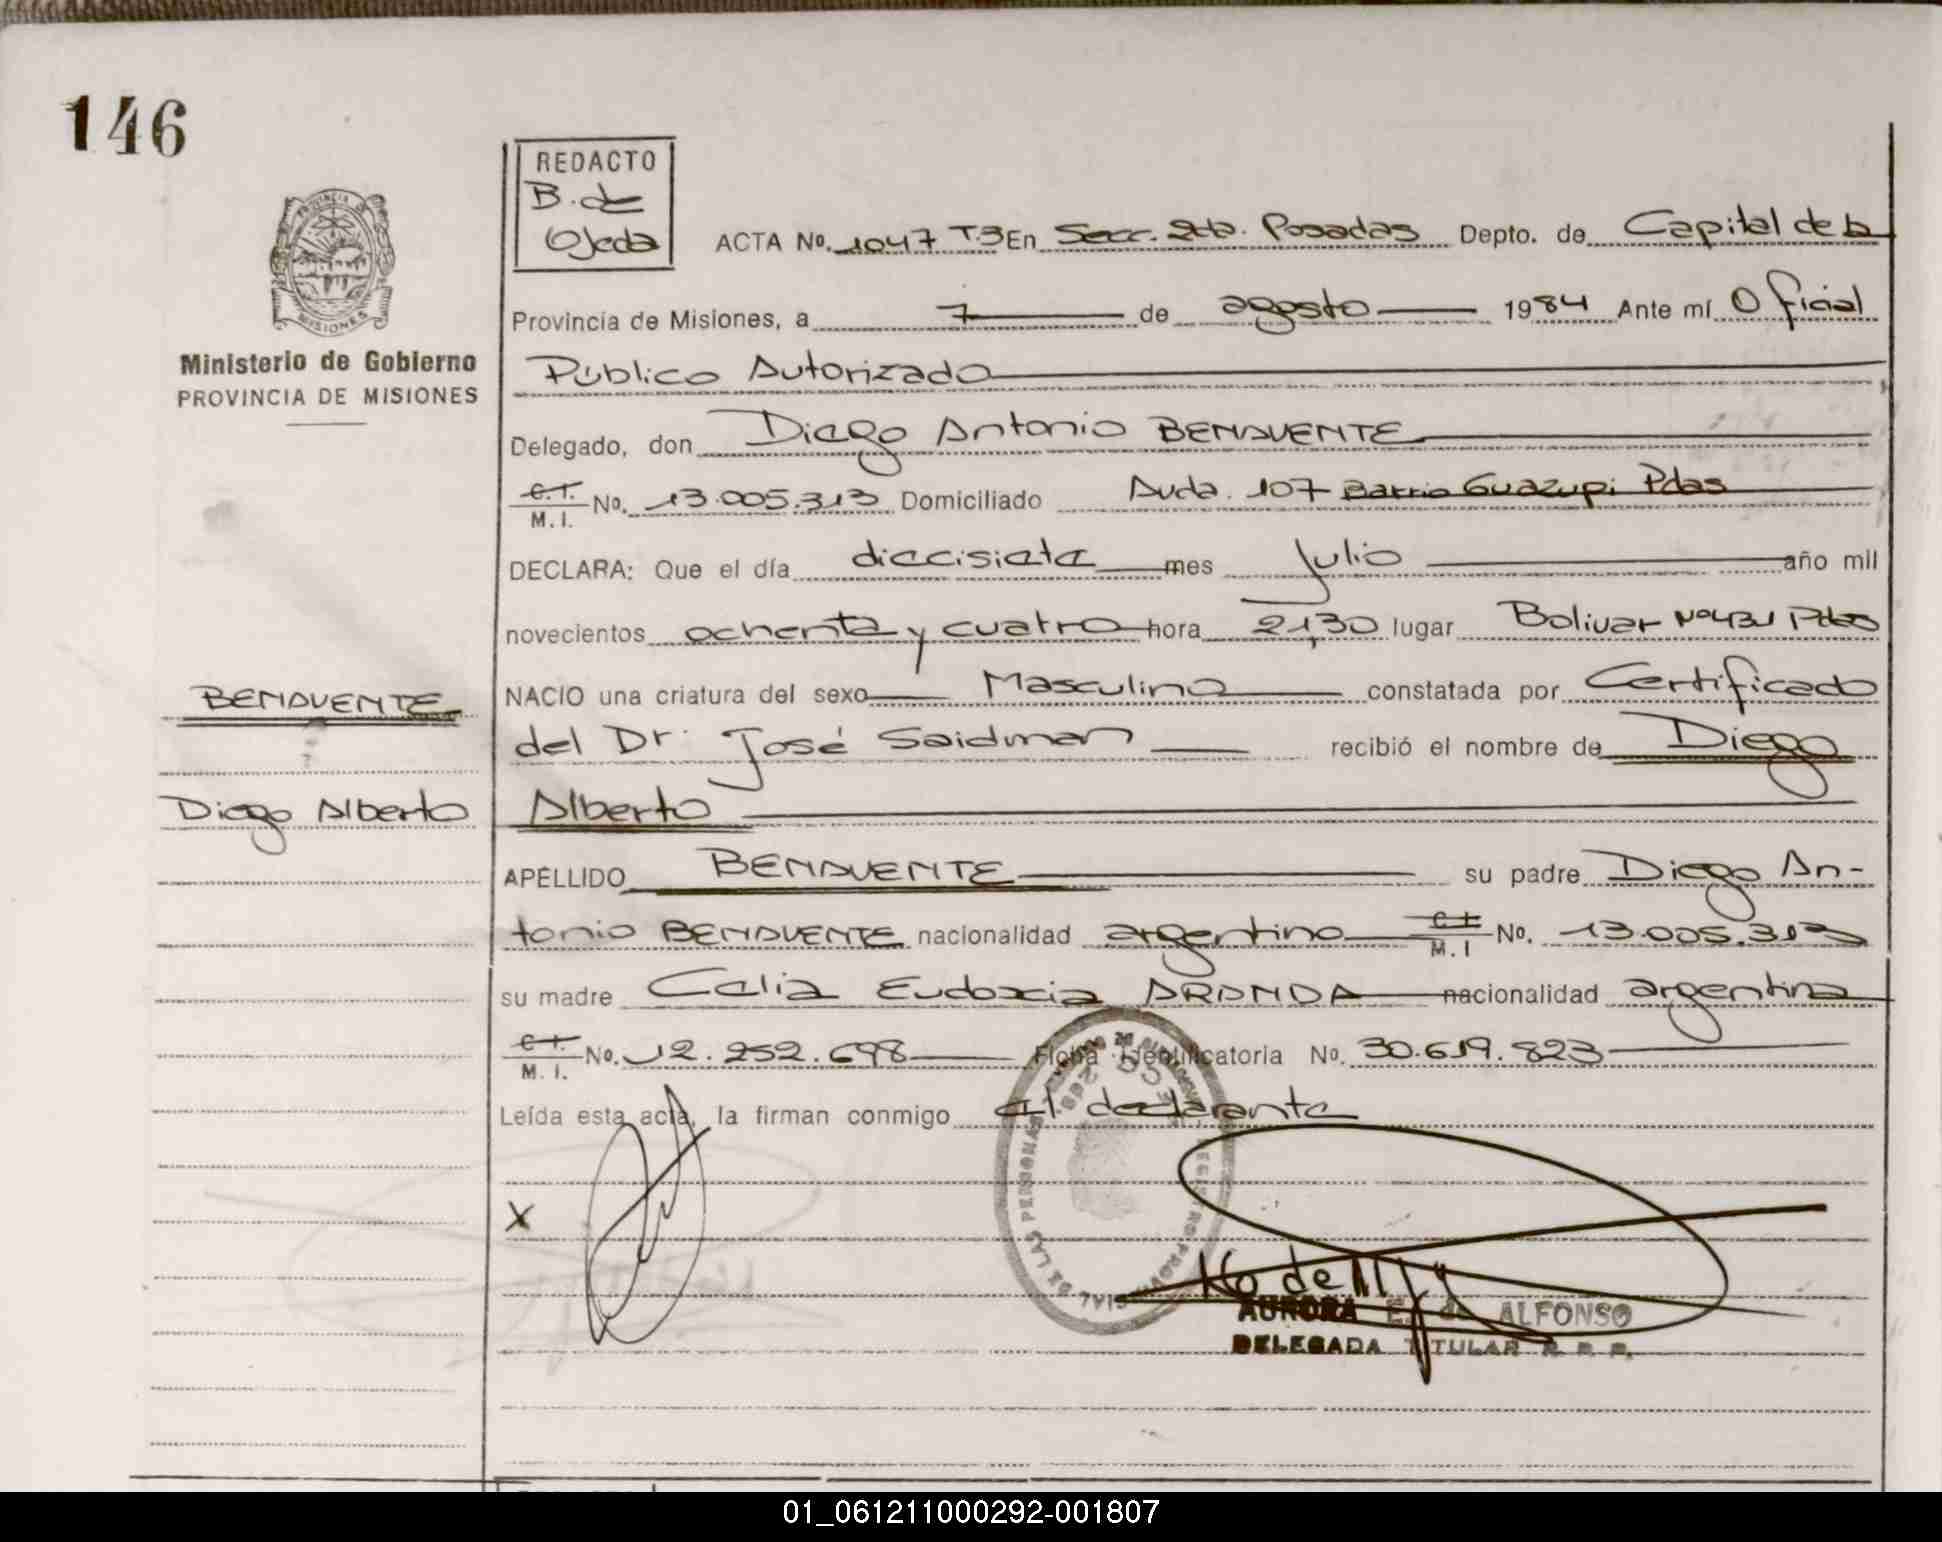 146
REDACTO
B. de
Ojeda
ACTA No. 1047 T.3 En Secc. 2da. Posadas Depto. de Capital de la
Provincia de Misiones, a 7 de agosto 1984 Ante mí Oficial
Público Autorizado
Delegado, don Diego Antonio BENAVENTE
C.I. No. 13.005.313 Domiciliado Avda. 107 Barrio Guazupi Pdas
M.I.
DECLARA: Que el día diecisiete mes Julio año mil
novecientos ochenta y cuatro hora 21,30 lugar Bolivar Nº431 Pdas
NACIO una criatura del sexo Masculino constatada por Certificado
del Dr. José Saidman recibió el nombre de Diego
Alberto
APELLIDO BENAVENTE su padre Diego An-
tonio BENAVENTE nacionalidad argentino C.I. No. 13.005.313
M.I
su madre Celia Eudoxia ARANDA nacionalidad argentina
C.I. No. 12.252.698 Ficha Identificatoria No. 30.619.823
M.I.
Leída esta acta, la firman conmigo el declarante
X
AURORA E. de ALFONSO
DELEGADA TITULAR R. P. P.
PROVINCIA DE
MISIONES
Ministerio de Gobierno
PROVINCIA DE MISIONES
BENAVENTE
Diego Alberto
DE LAS PERSONAS
01_061211000292-001807